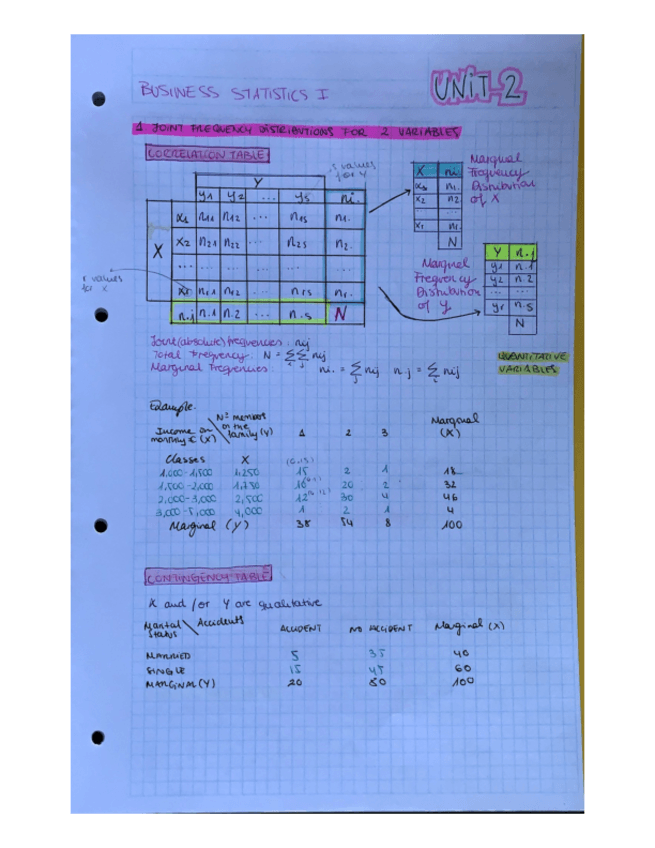 BUSINESS STATISTICS I
UNIT-2
1 JOINT FREQUENCY DISTRIBUTIONS FOR 2 VARIABLES
CORRELATION TABLE
s values for Y
Y
y1 y2 ... ys ni.
X
x1 n11 n12 ... n1s n1.
x2 n21 n22 ... n2s n2.
... ... ... ...
xr nr1 nr2 ... nrs nr.
n.j n.1 n.2 ... n.s N
r values for X
X ni.
x1 n1.
x2 n2
...
xr nr.
N
Marginal Frequency Distribution of X
Marginal Frequency Distribution of Y
Y n.j
y1 n.1
y2 n.2
... ...
n.s
N
Joint (absolute) frequencies: nij
Total Frequency: N = ΣΣ nij
i j
Marginal Frequencies: ni. = Σ nij n.j = Σ nij
j i
QUANTITATIVE VARIABLES
Example.
Income in monthly € (X) \ Nº members in the family (Y) 1 2 3 Marginal (X)
Classes X
1,000-1,500 1,250 15 2 1 18
1,500-2,000 1,750 20 2 32
2,000-3,000 2,500 12 30 4 46
3,000-5,000 4,000 1 2 1 4
Marginal (Y) 38 54 8 100
CONTINGENCY TABLE
X and/or Y are qualitative
Marital Status \ Accidents ACCIDENT NO ACCIDENT Marginal (X)
MARRIED 5 35 40
SINGLE 15 45 60
MARGINAL (Y) 20 80 100